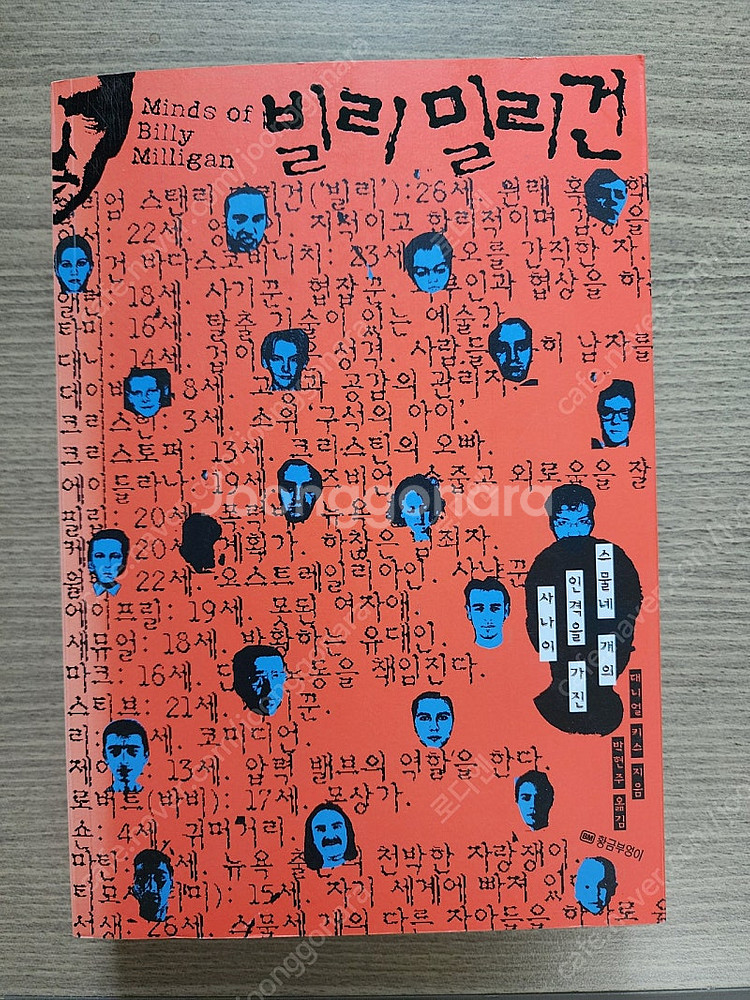 Minds of
Billy
Milligan
빌리 밀리건
리엄 스탠리 건('빌리'):26세. 원래
22세. 지적이고 합리적이며
바다스코비니치: 23세 오를 간직한 자.
18세. 사기꾼. 협잡꾼. 인과 협상을
16세. 탈출 기술이 있는 예술가
14세. 겁이 성격. 사람들 남자를
8세. 공감의 관리자
3세. 소위 '구석의 아이'.
스토퍼: 13세. 크리스틴의 오빠.
들라나: 19세. 즈비언 외로움을 잘
20세. 뉴욕
20세 계획가. 하찮은 범죄자.
22세. 오스트레일리아인 사냥꾼
에이프릴: 19세. 못된 여자애.
새뮤얼: 18세. 방황하는 유대인.
마크: 16세. 단 노동을 책임진다.
스티브: 21세. 꾼.
리 세. 코미디언.
제이 13세. 압력 밸브의 역할을 한다.
로버트(바비): 17세. 모상가.
숀: 4세. 귀머거리.
마틴 세. 뉴욕 출 천박한 자랑쟁이.
티모시 미): 15세. 자기 세계에 빠져 있
선생: 26세. 스물세 개의 다른 자아들을 하나로
스물네 개의
인격을 가진
사나이
대니얼 키스 지음
박현주 옮김
BM 황금부엉이
Joonggonara
cafe.naver.com/joonggonara
로다인